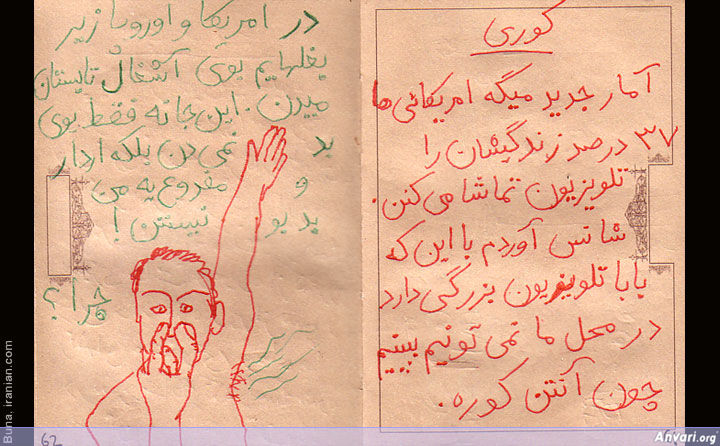 کوری
آمار جدید میگه امریکائی ها
۳۷ درصد زندگیشان را
تلویزیون تماشا می کنن.
شانس آوردم با این که
بابا تلویزیون بزرگی دارد
در محل ما نمی تونیم ببینیم
چون آنتن کوره.
در امریکا و اوروپا زیر
بغلهایم بوی آشغال تابستان
میدن. این جا نه فقط بوی
بد نمی دن بلکه ادرار
و مدفوع یه من
بد بو نیستن!
چرا؟
62
Buna. iranian.com
Anvari.org